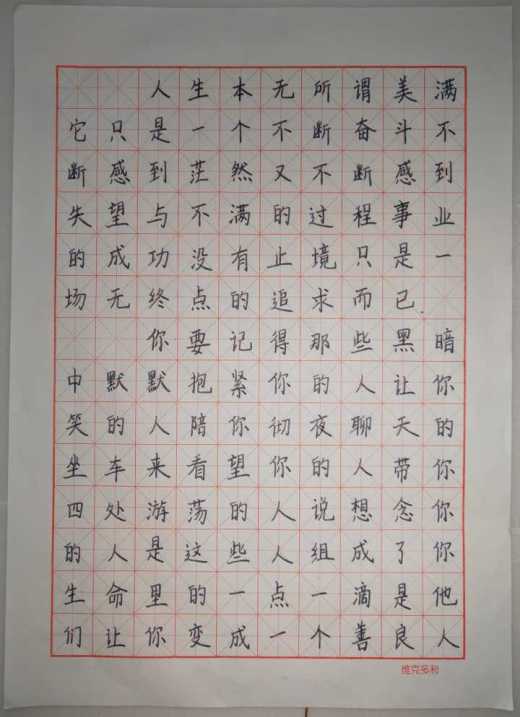 人生本无所谓美满
它只是一个不断奋斗不
断感到茫然又不断感到
失望与不满的过程事业
的成功没有止境只是一
场无终点的追求而已.
你要记得那些黑暗
中默默抱紧你的人让你
笑的人陪你彻夜聊天的
坐车来看望你的人带你
四处游荡的人说想念你
的人是这些人组成了你
生命里的一点一滴是他
们让你变成一个善良人
维克多利